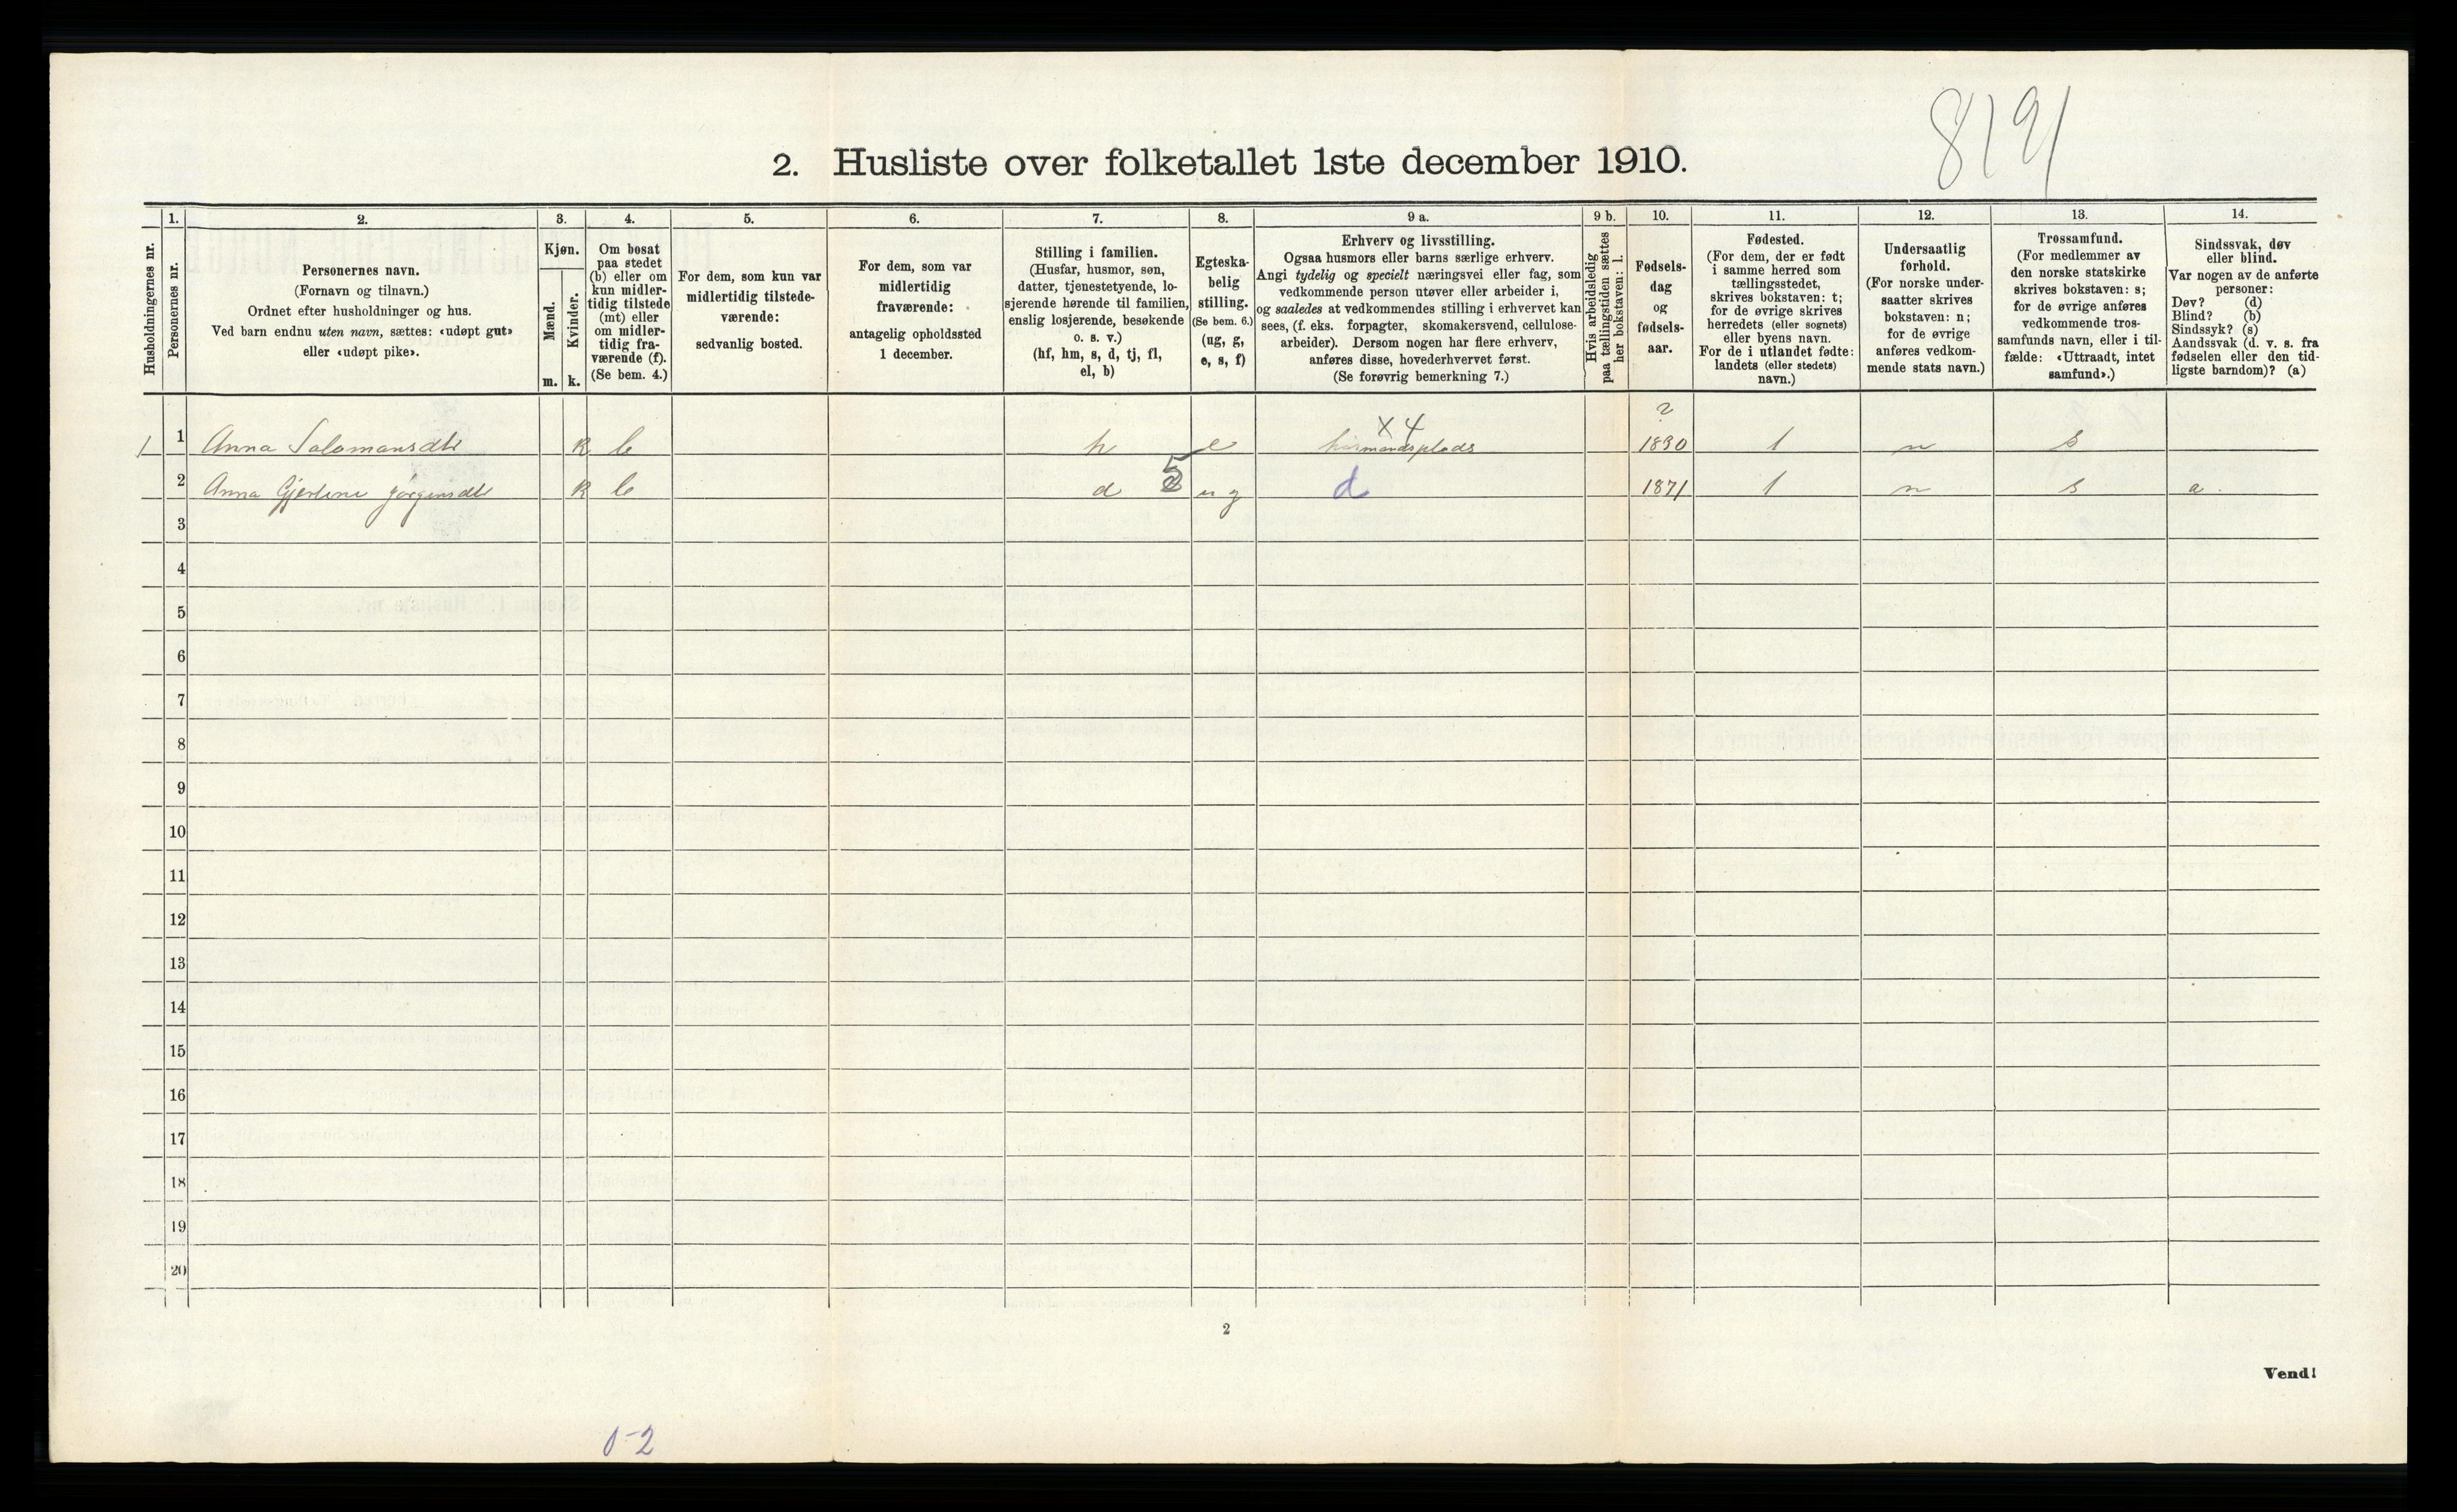 8191
2. Husliste over folketallet 1ste december 1910.
Husholdningernes nr.
1.
Personernes nr.
2.
Personernes navn.
(Fornavn og tilnavn.)
Ordnet efter husholdninger og hus.
Ved barn endnu uten navn, sættes: «udøpt gut»
eller «udøpt pike».
3.
Kjøn.
Mænd.
m.
Kvinder.
k.
4.
Om bosat
paa stedet
(b) eller om
kun midler-
tidig tilstede
(mt) eller
om midler-
tidig fra-
værende (f).
(Se bem. 4.)
5.
For dem, som kun var
midlertidig tilstede-
værende:
sedvanlig bosted.
6.
For dem, som var
midlertidig
fraværende:
antagelig opholdssted
1 december.
7.
Stilling i familien.
(Husfar, husmor, søn,
datter, tjenestetyende, lo-
sjerende hørende til familien,
enslig losjerende, besøkende
o. s. v.)
(hf, hm, s, d, tj, fl,
el, b)
8.
Egteska-
belig
stilling.
(Se bem. 6.)
(ug, g,
e, s, f)
9 a.
Erhverv og livsstilling.
Ogsaa husmors eller barns særlige erhverv.
Angi tydelig og specielt næringsvei eller fag, som
vedkommende person utøver eller arbeider i,
og saaledes at vedkommendes stilling i erhvervet kan
sees, (f. eks. forpagter, skomakersvend, cellulose-
arbeider). Dersom nogen har flere erhverv,
anføres disse, hovederhvervet først.
(Se forøvrig bemerkning 7.)
9 b.
Hvis arbeidsledig
paa tællingstiden sættes
her bokstaven: l.
10.
Fødsels-
dag
og
fødsels-
aar.
11.
Fødested.
(For dem, der er født
i samme herred som
tællingsstedet,
skrives bokstaven: t;
for de øvrige skrives
herredets (eller sognets)
eller byens navn.
For de i utlandet fødte:
landets (eller stedets)
navn.)
12.
Undersaatlig
forhold.
(For norske under-
saatter skrives
bokstaven: n;
for de øvrige
anføres vedkom-
mende stats navn.)
13.
Trossamfund.
(For medlemmer av
den norske statskirke
skrives bokstaven: s;
for de øvrige anføres
vedkommende tros-
samfunds navn, eller i til-
fælde: «Uttraadt, intet
samfund».)
14.
Sindssvak, døv
eller blind.
Var nogen av de anførte
personer:
Døv? (d)
Blind? (b)
Sindssyk? (s)
Aandssvak (d. v. s. fra
fødselen eller den tid-
ligste barndom)? (a)
X 4
1 1 Anna Salomansdtr k b h e 1830 t n s
2 Anna Gjertine Jørgensdtr k b d 5 ug d 1871 t n s a.
3
4
5
6
7
8
9
10
11
12
13
14
15
16
17
18
19
20
2
Vend!
0-2